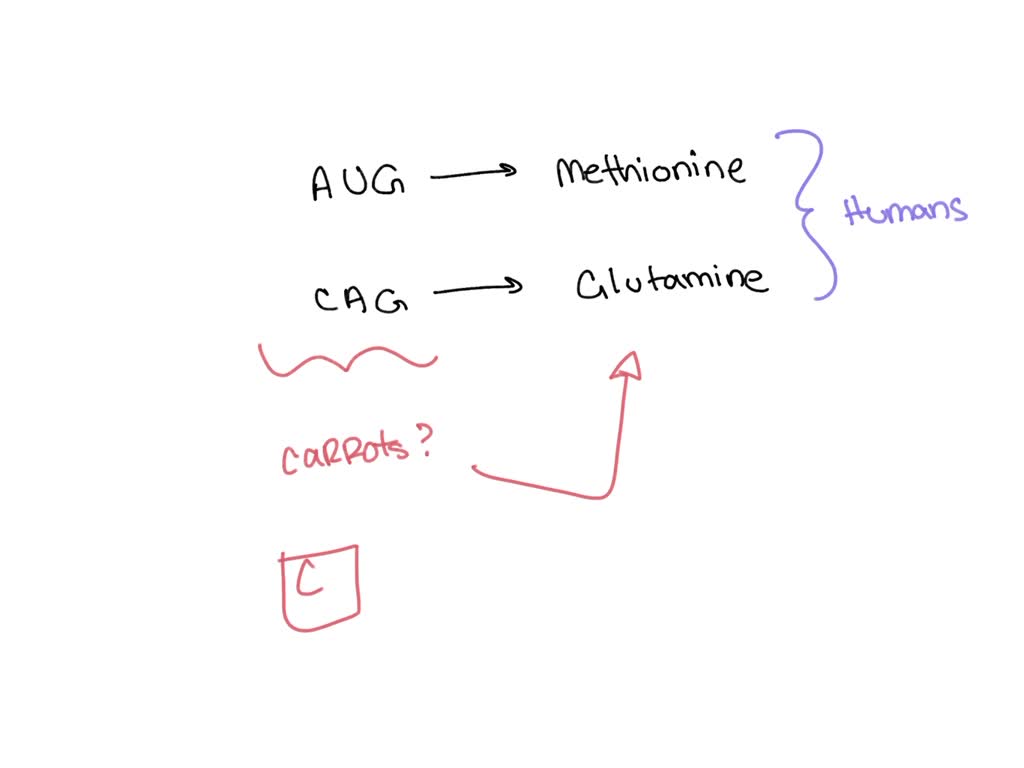 AUG → Methionine
Humans
CAG → Glutamine
CARRots?
C